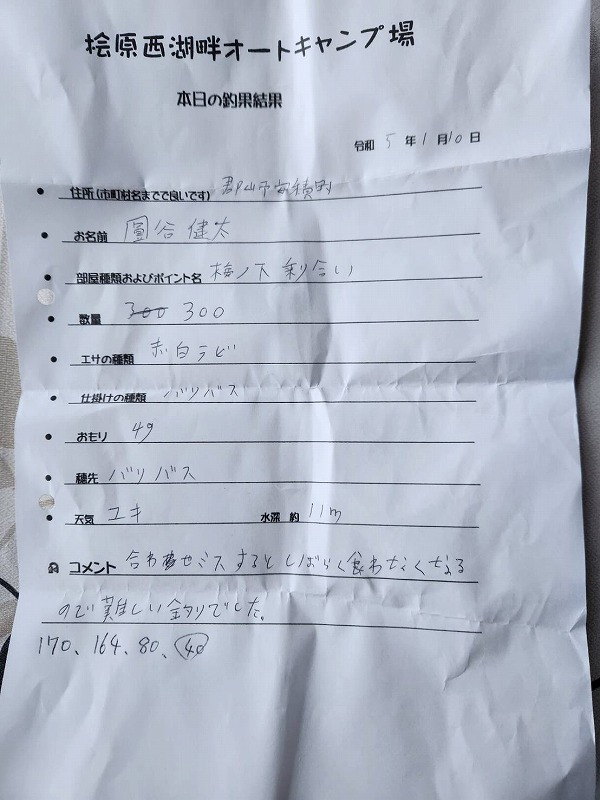 桧原西湖畔オートキャンプ場
本日の釣果結果
令和 5 年 1 月 10 日
住所(市町村名までで良いです) 郡山市安積町
お名前 圓谷 健太
部屋種類およびポイント名 梅ノ下 乗り合い
数量 300 300
エサの種類 赤白ラビ
仕掛けの種類 バリバス
おもり 4g
穂先 バリバス
天気 ユキ 水深 約 11m
コメント 合わせミスするとしばらく食わなくなる
ので難しい釣りでした。
170、164、80、40